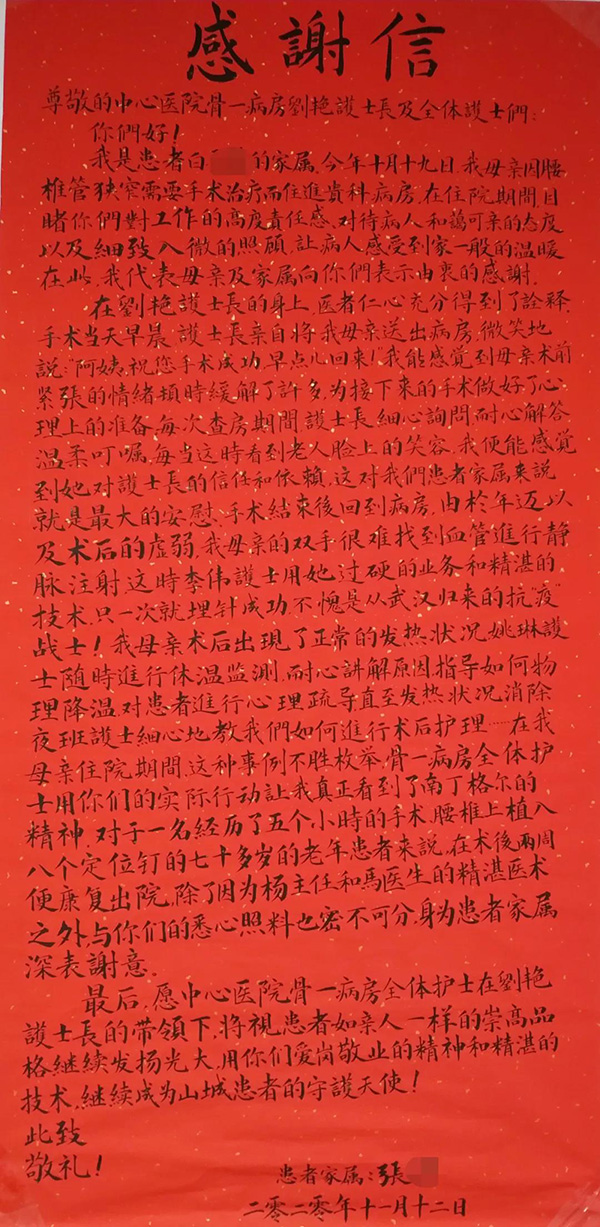 感謝信
尊敬的中心医院骨一病房劉艳護士長及全体護士們：
你們好！
我是患者白 的家属，今年十月十九日，我母亲因腰
椎管狭窄需要手术治疗而住進貴科病房，在住院期間，目
睹你們對工作的高度责任感，对待病人和謁可亲的态度
以及細致入微的照顧，讓病人感受到家一般的温暖
在此，我代表母亲及家属向你們表示由衷的感謝。
在劉艳護士長的身上，医者仁心充分得到了詮释，
手术当天早晨，護士長亲自将我母亲送出病房，微笑地
説：“阿姨，祝您手术成功，早点儿回来！”我能感觉到母亲术前
紧張的情緒頓時緩解了許多，为接下来的手术做好了心
理上的准备，每次查房期間，護士長細心詢問，耐心解答
温柔叮嘱，每当这時看到老人脸上的笑容，我便能感觉
到她对護士長的信任和依賴，这对我們患者家属来説
就是最大的安慰，手术結束後回到病房，由於年迈以
及术后的虚弱，我母亲的双手很难找到血管進行静
脉注射，这時李伟護士用她过硬的业务和精湛的
技术，只一次就埋针成功，不愧是从武汉归来的“抗疫”
战士！我母亲术后出現了正常的发热状况，姚琳護
士随時進行体温监測，耐心讲解原因，指导如何物
理降温，对患者進行心理疏导直至发热状况消除
夜班護士細心地教我們如何進行术后护理……在我
母亲住院期間，这种事例不胜枚举，骨一病房全体护
士用你们的实际行动让我真正看到了南丁格尔的
精神，对于一名经历了五个小時的手术，腰椎上植入
八个定位钉的七十多岁的老年患者来説，在术後两周
便康复出院，除了因为杨主任和馬医生的精湛医术
之外，与你们的悉心照料也密不可分，身为患者家属
深表謝意。
最后，愿中心医院骨一病房全体护士在劉艳
護士長的带領下，将視患者如亲人一样的崇高品
格继续发扬光大，用你们爱岗敬业的精神和精湛的
技术，继续成为山城患者的守護天使！
此致
敬礼！
患者家属：張
二零二零年十一月十二日